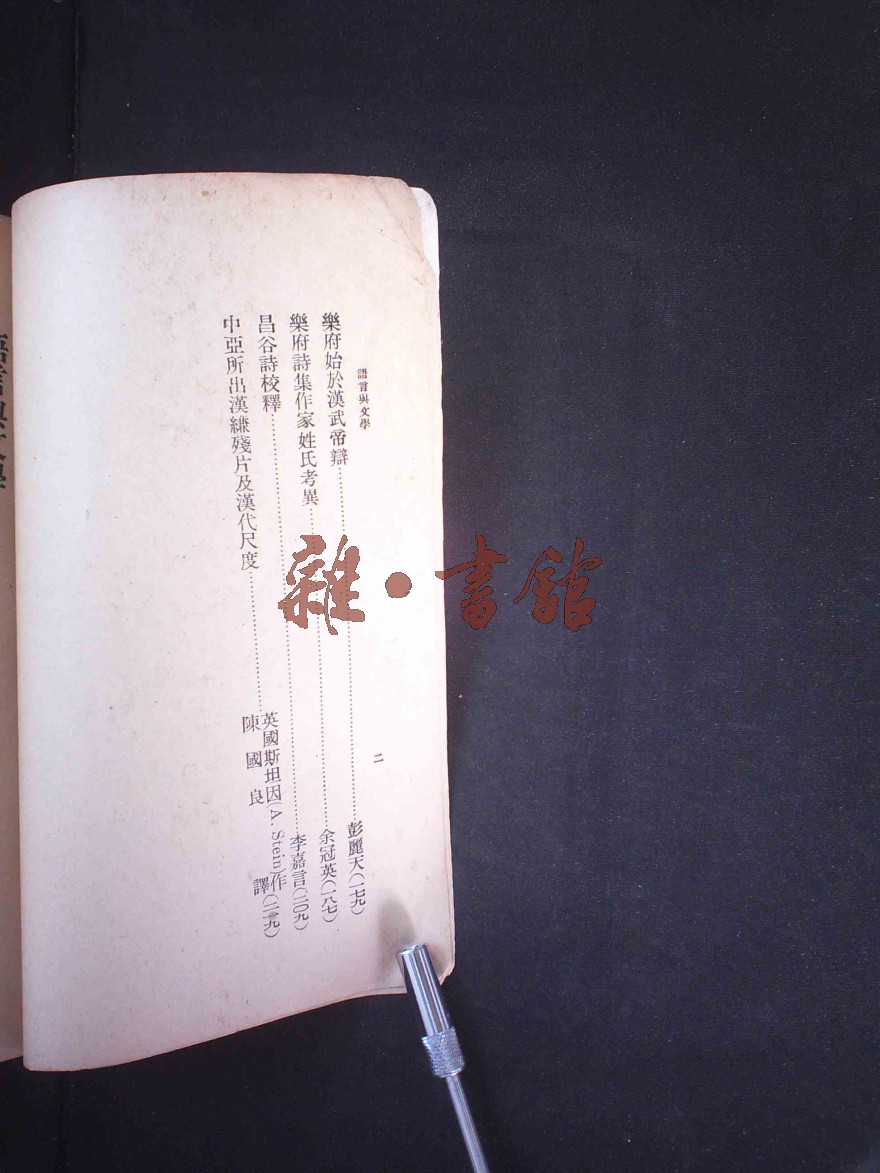 語言與文學
二
樂府始於漢武帝辯……彭麗天(一七九)
樂府詩集作家姓氏考異……余冠英(一八七)
昌谷詩校釋……李嘉言(二〇九)
中亞所出漢縑殘片及漢代尺度……英國斯坦因(A. Stein)作
陳國良譯(二一九)
雜·書館
語言與文學